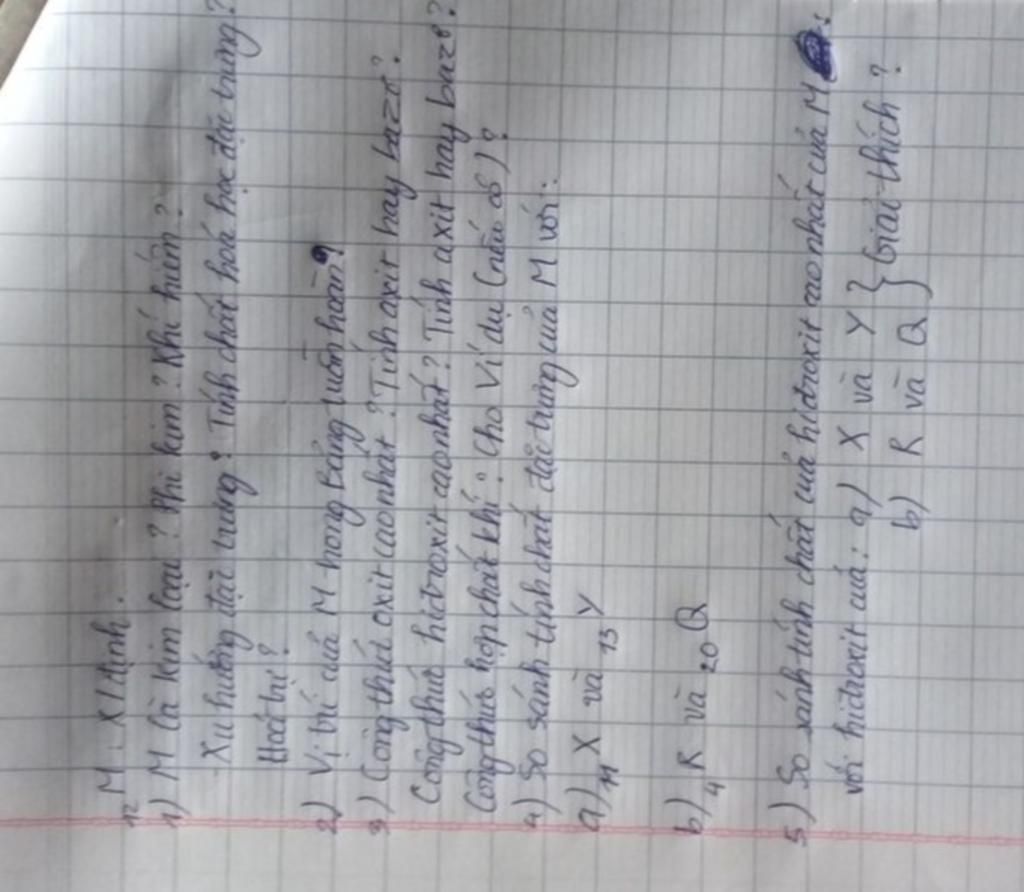 12 M. Xđịnh.
1) M là kim loại? Phi kim? Khí hiếm?
- Xu hướng đặc trưng? Tính chất hoá học đặc trưng?
Hoá trị?
2) Vị trí của M trong bảng tuần hoàn?
3) Công thức oxit cao nhất? Tính axit hay bazơ?
Công thức hiđroxit cao nhất? Tính axit hay bazơ?
Công thức hợp chất khí? Cho Ví dụ (nếu có)?
4) So sánh tính chất đặc trưng của M với:
a) 11 X và 13 Y
b) 4 R và 20 Q
5) So sánh tính chất của hiđroxit cao nhất của M
với hiđroxit của: a) X và Y } Giải thích?
b) R và Q